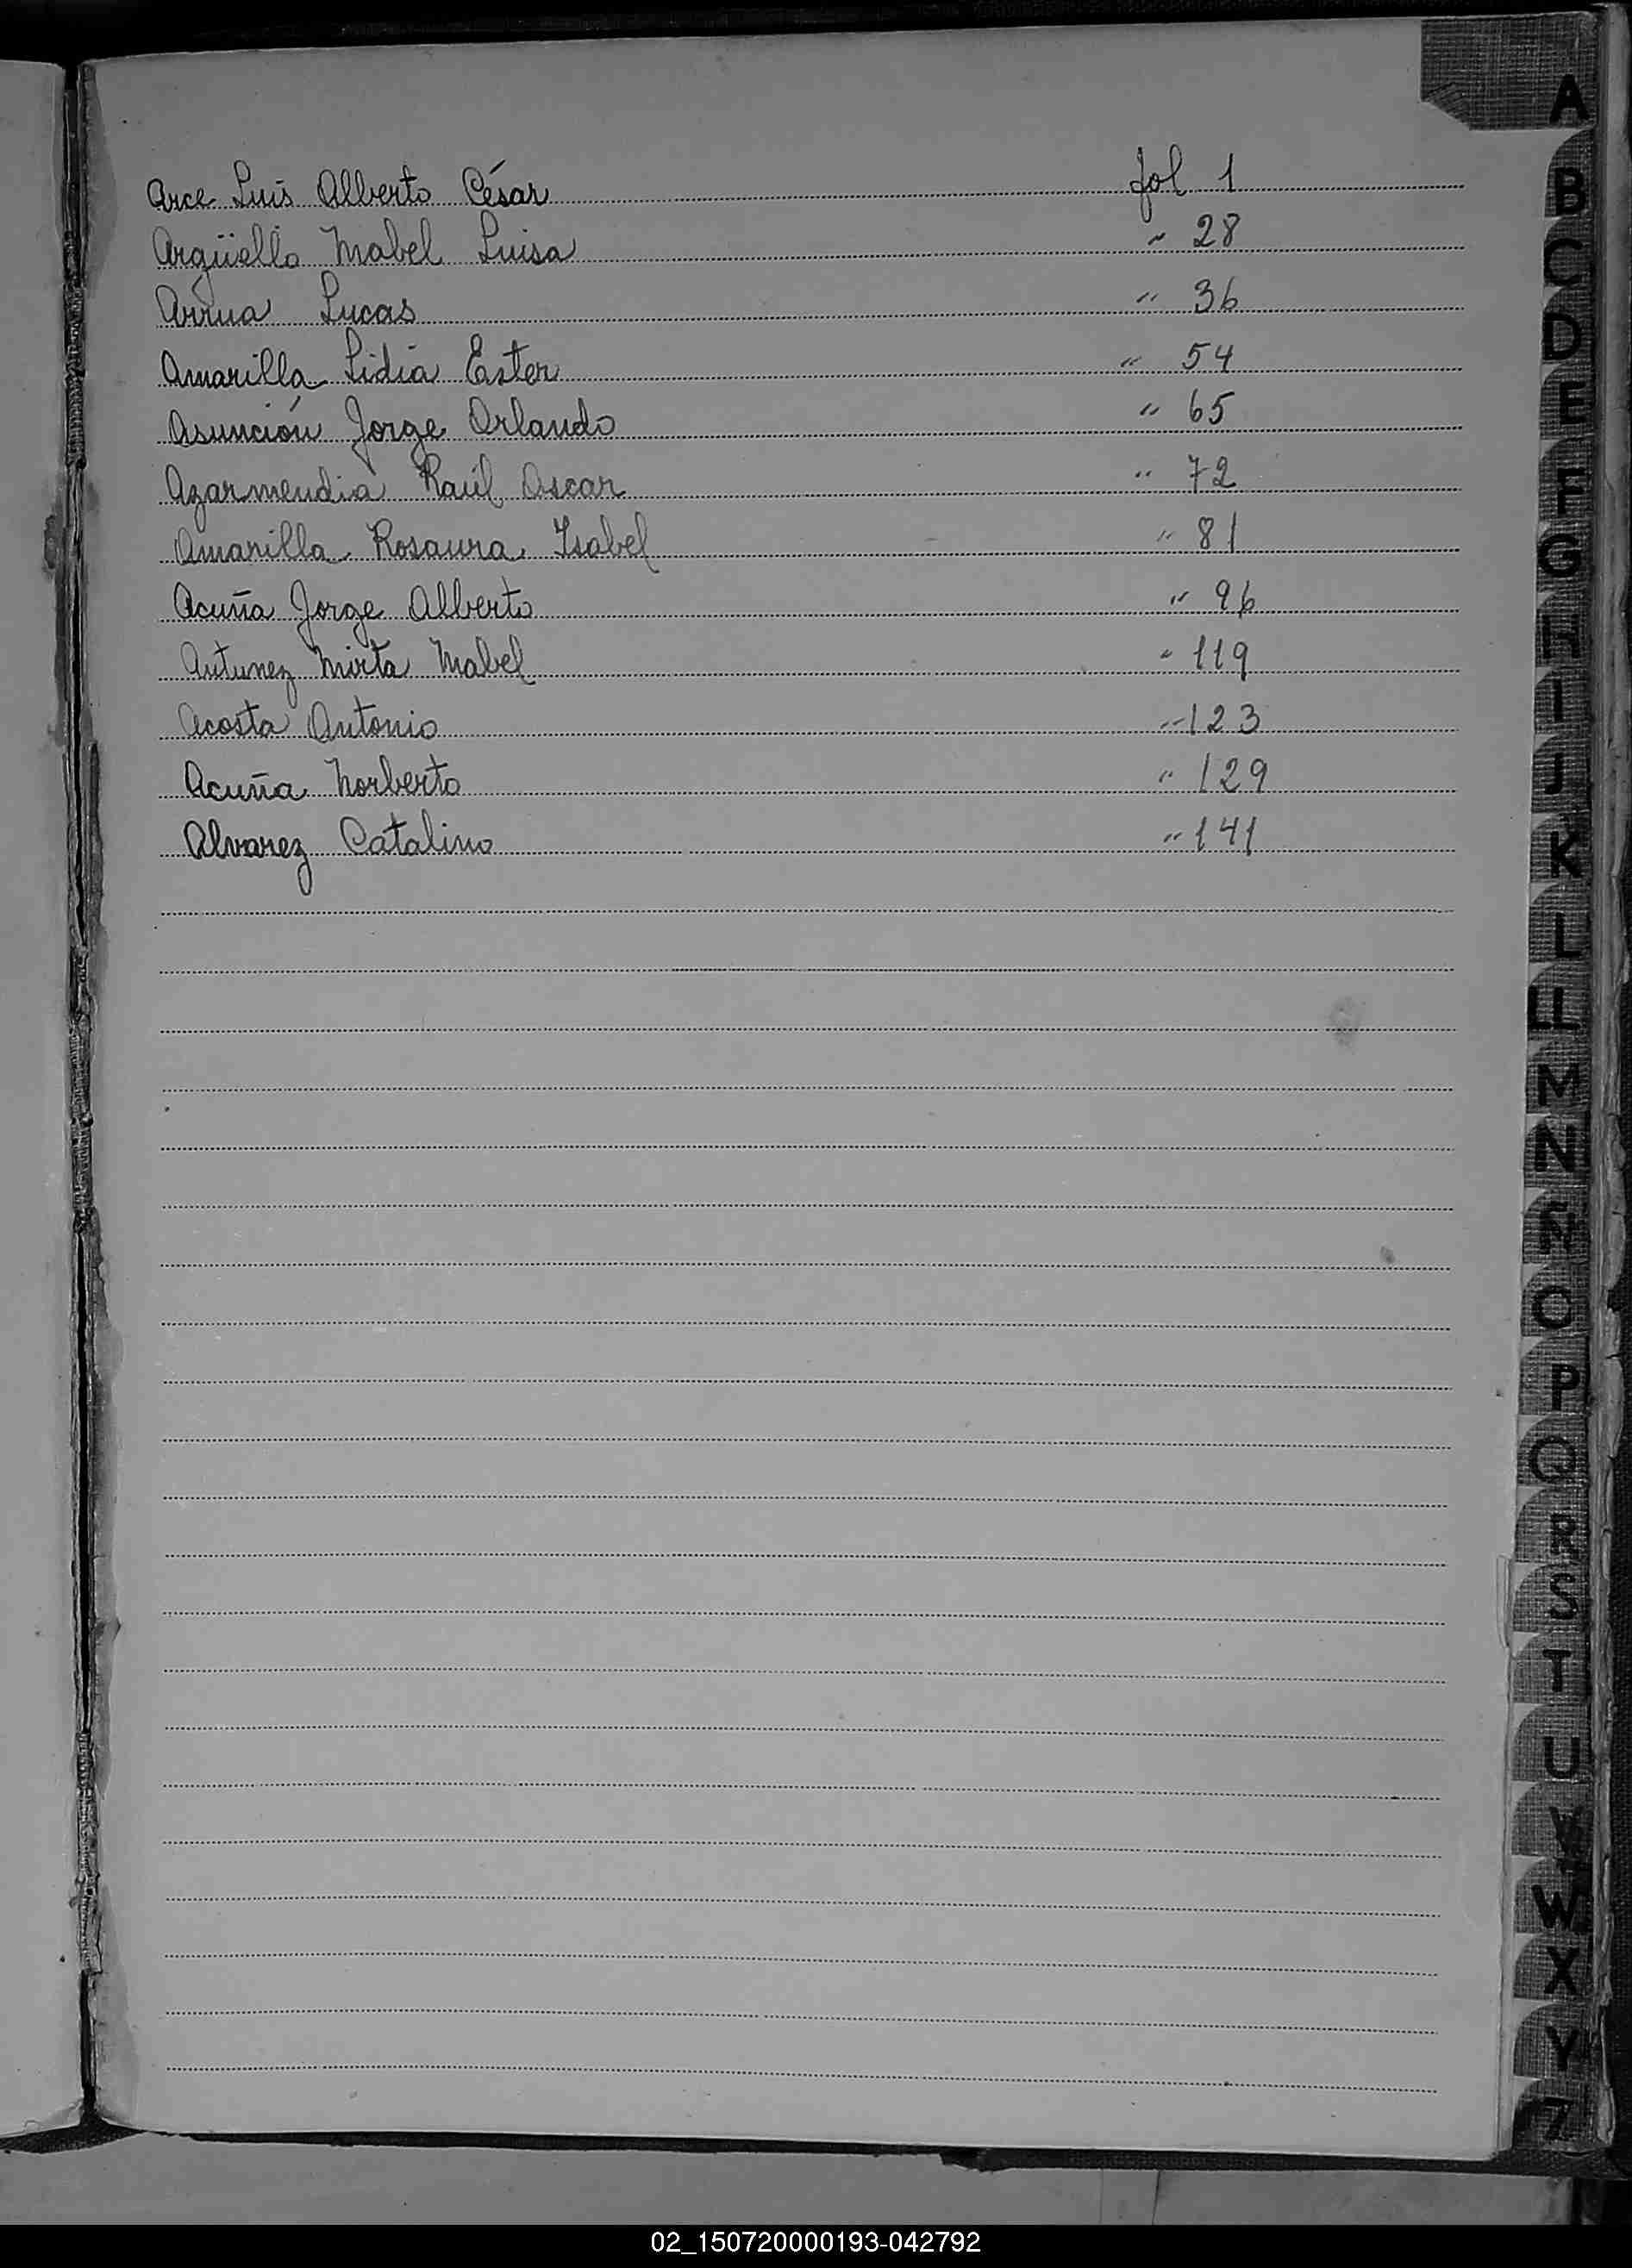 Arce Luis Alberto César fol 1
Argüello Mabel Luisa " 28
Arrua Lucas " 36
Amarilla Lidia Ester " 54
Asunción Jorge Orlando " 65
Azarmendia Raúl Oscar " 72
Amarilla Rosaura Isabel " 81
Acuña Jorge Alberto " 96
Antunez Mirta Mabel " 119
Acosta Antonio " 123
Acuña Norberto " 129
Alvarez Catalino " 141
A
B
C
D
E
F
G
H
I
J
K
L
LL
M
N
Ñ
O
P
Q
R
S
T
U
V
W
X
Y
Z
02_150720000193-042792